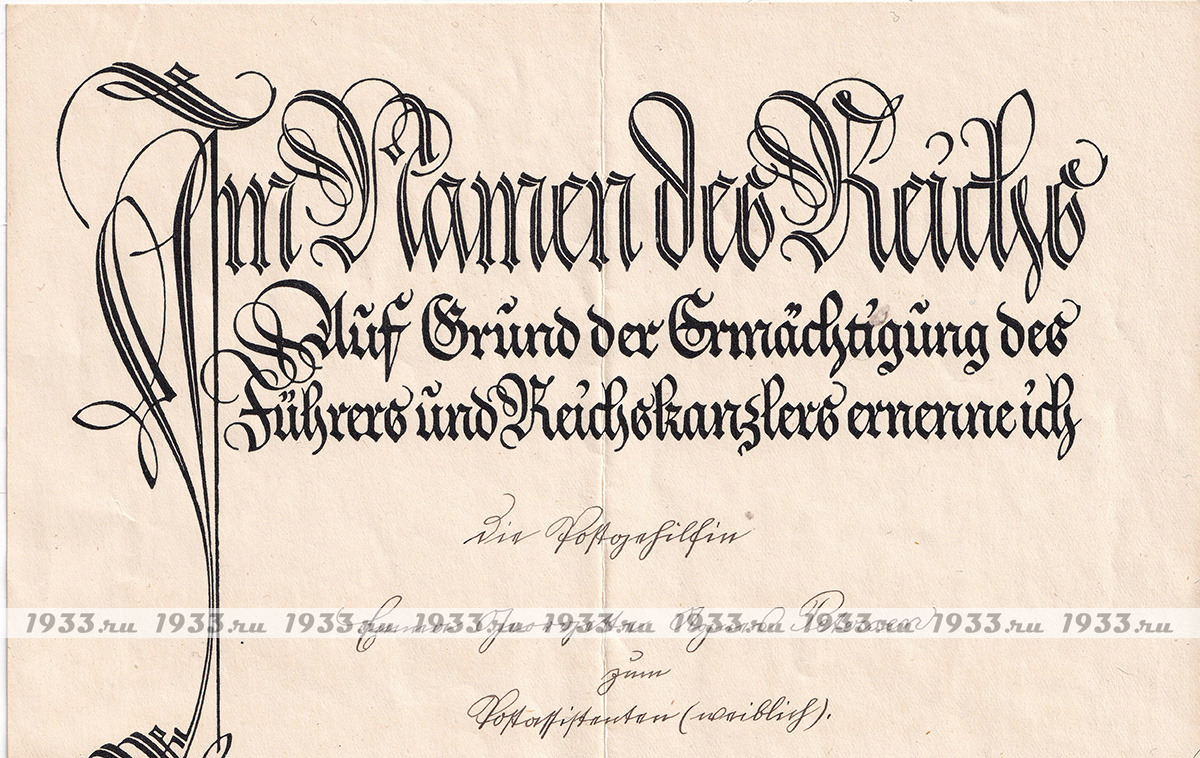 Im Namen des Reichs
Auf Grund der Ermächtigung des
Führers und Reichskanzlers ernenne ich
die Postgehilfin
1933.ru 1933.ru 1933.ru 1933.ru 1933.ru 1933.ru 1933.ru 1933.ru 1933.ru
zum
Postassistenten (weiblich).